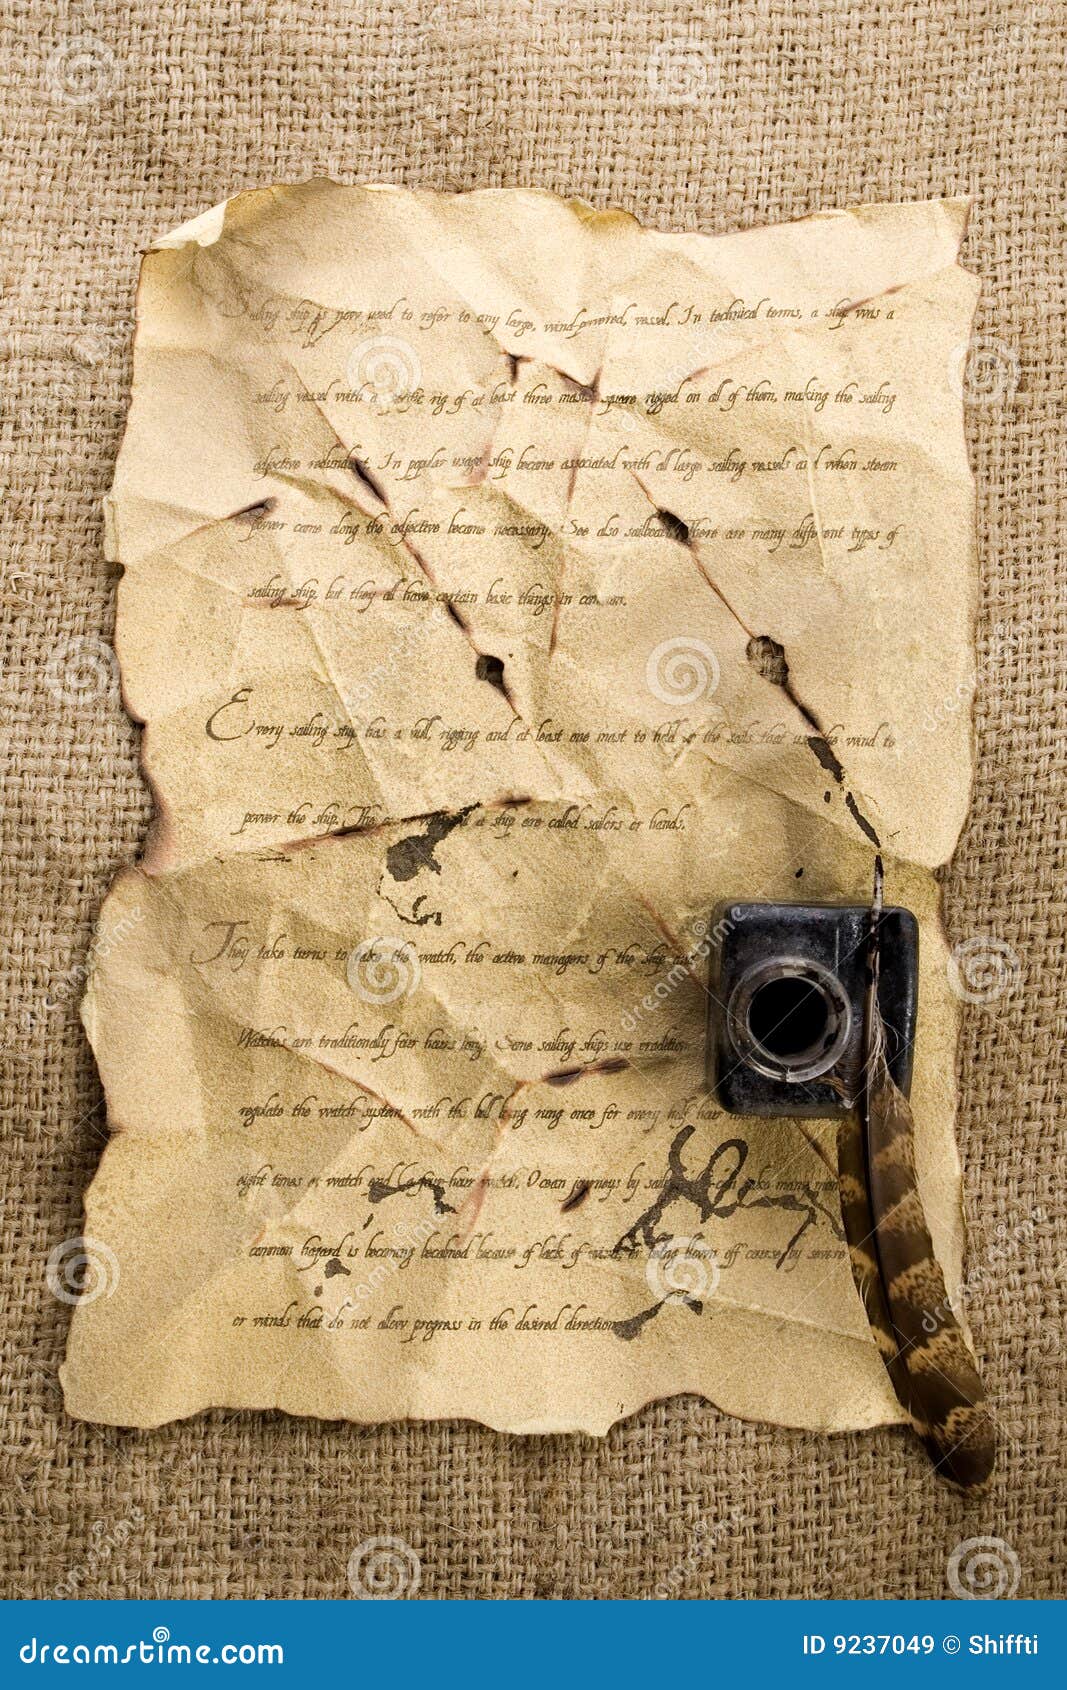 Sailing ship is now used to refer to any large, wind-powered, vessel. In technical terms, a ship was a
sailing vessel with a specific rig of at least three masts, square rigged on all of them, making the sailing
adjective redundant. In popular usage ship became associated with all large sailing vessels and when steam
power came along the adjective became necessary. See also sailboat. There are many different types of
sailing ship, but they all have certain basic things in common.
Every sailing ship has a hull, rigging and at least one mast to hold up the sails that use the wind to
power the ship. The a ship are called sailors or hands.
They take turns to take the watch, the active managers of the ship and
Watches are traditionally four hours long. Some sailing ships use
regulate the watch system with the bell being rung once for every half hour
eight times a watch Ocean journeys by sail can take many
common hazard is becoming becalmed because of lack of wind, or being blown off course by severe
or winds that do not allow progress in the desired direction
dreamstime.com
ID 9237049 © Shiffti